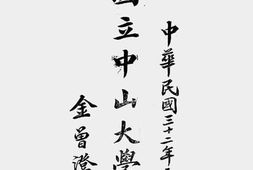 中華民國三十二年
國立中山大學
金曾澄